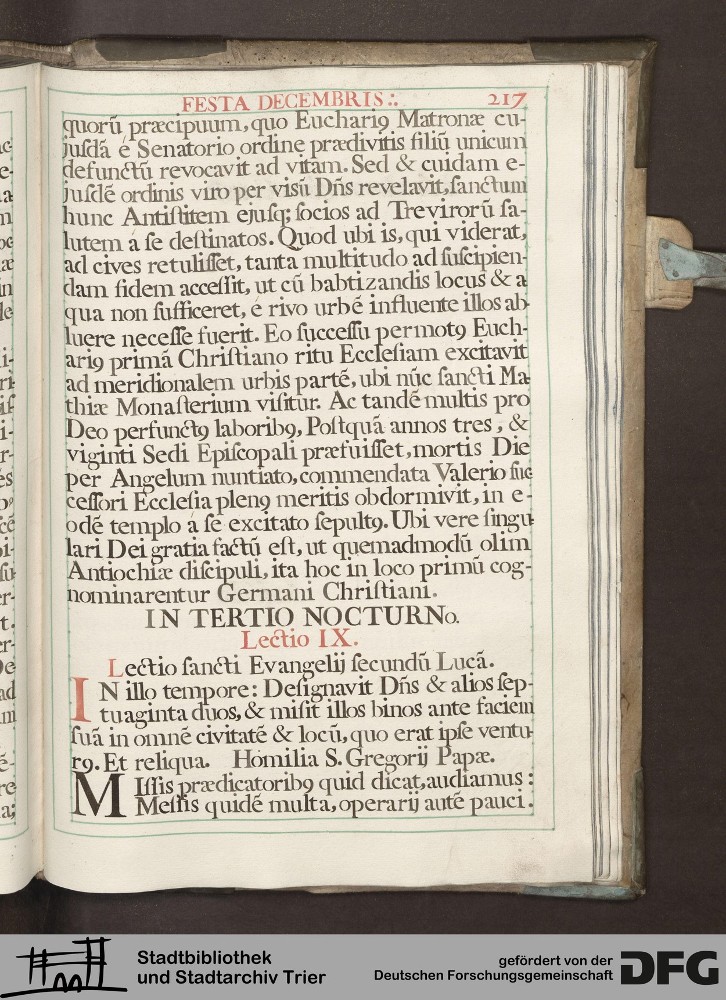 FESTA DECEMBRIS.:. 217
quorũ præcipuum, quo Euchariꝯ Matronæ cu-
juſdã é Senatorio ordine prædivitis filiũ unicum
defunctũ revocavit ad vitam. Sed & cuidam e-
juſdẽ ordinis viro per visũ Dñs revelavit, ſanctum
hunc Antiſtitem ejuſq; ſocios ad Trevirorũ ſa-
lutem á ſe deſtinatos. Quod ubi is, qui viderat,
ad cives retuliſſet, tanta multitudo ad ſuſcipien-
dam fidem acceſſit, ut cũ babtizandis locus & a
qua non ſufficeret, é rivo urbẽ influente illos ab
luere neceſſe fuerit. Eo ſucceſſu permotꝯ Euch-
ariꝯ primã Chriſtiano ritu Eccleſiam excitavit
ad meridionalem urbis partẽ, ubi nũc ſancti Ma-
thiæ Monaſterium viſitur. Ac tandẽ multis pro
Deo perfunctꝯ laboribꝯ, Poſtquã annos tres, &
viginti Sedi Epiſcopali præfuiſſet, mortis Die
per Angelum nuntiato, commendata Valerio ſuc
ceſſori Eccleſia plenꝯ meritis obdormivit, in e-
odẽ templo á ſe excitato ſepultꝯ. Ubi vere ſingu
lari Dei gratia factũ eſt, ut quemadmodũ olim
Antiochiæ diſcipuli, ita hoc in loco primũ cog-
nominarentur Germani Chriſtiani.
IN TERTIO NOCTURNo.
Lectio IX.
Lectio ſancti Evangelij ſecundũ Lucã.
IN illo tempore: Deſignavit Dñs & alios ſep-
tuaginta duos, & miſit illos binos ante faciem
ſuã in omnẽ civitatẽ & locũ, quo erat ipſe ventu-
rꝯ. Et reliqua. Homilia S. Gregorij Papæ.
MIſſis prædicatoribꝯ quid dicat, audiamus:
Meſſis quidẽ multa, operarij autẽ pauci.
Stadtbibliothek
und Stadtarchiv Trier
gefördert von der
Deutschen Forschungsgemeinschaft
DFG